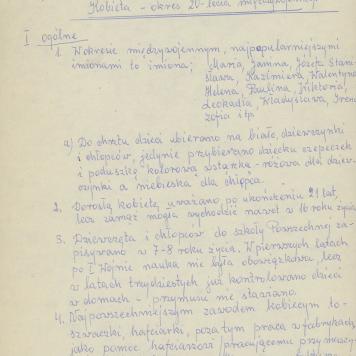 Kobieta - okres 20-lecia międzywojennego
I ogólne
1. W okresie międzywojennym, najpopularniejszymi
imionami to imiona; Maria, Janina, Józefa Stani-
sława, Kazimiera, Walentyna
Helena, Paulina, Wiktoria,
Leokadia, Władysława, Irena
Zofia itp.
a) Do chrztu dzieci ubierano na biało, dziewczynki
i chłopców, jedynie przybierano dziecku czepeczek
i poduszkę kolorową wstążką - różową dla dziew-
czynki a niebieską dla chłopca.
2. Dorosłą kobietę uważano, po ukończeniu 21 lat,
lecz zamąż mogła wychodzić nawet w 16 roku życia
3. Dziewczęta i chłopców do szkoły Powszechnej za-
pisywano w 7-8 roku życia. W pierwszych latach
po I Wojnie nauka nie była obowiązkowa, lecz
w latach trzydziestych już kontrolowano dzieci
w domach - przymusu nie stawiano.
4. Najpowszechniejszym zawodem kobiecym to-
szwaczki, hafciarki, poza tym praca w fabrykach,
jako pomoc hafciarsza pracującemu przy maszy-